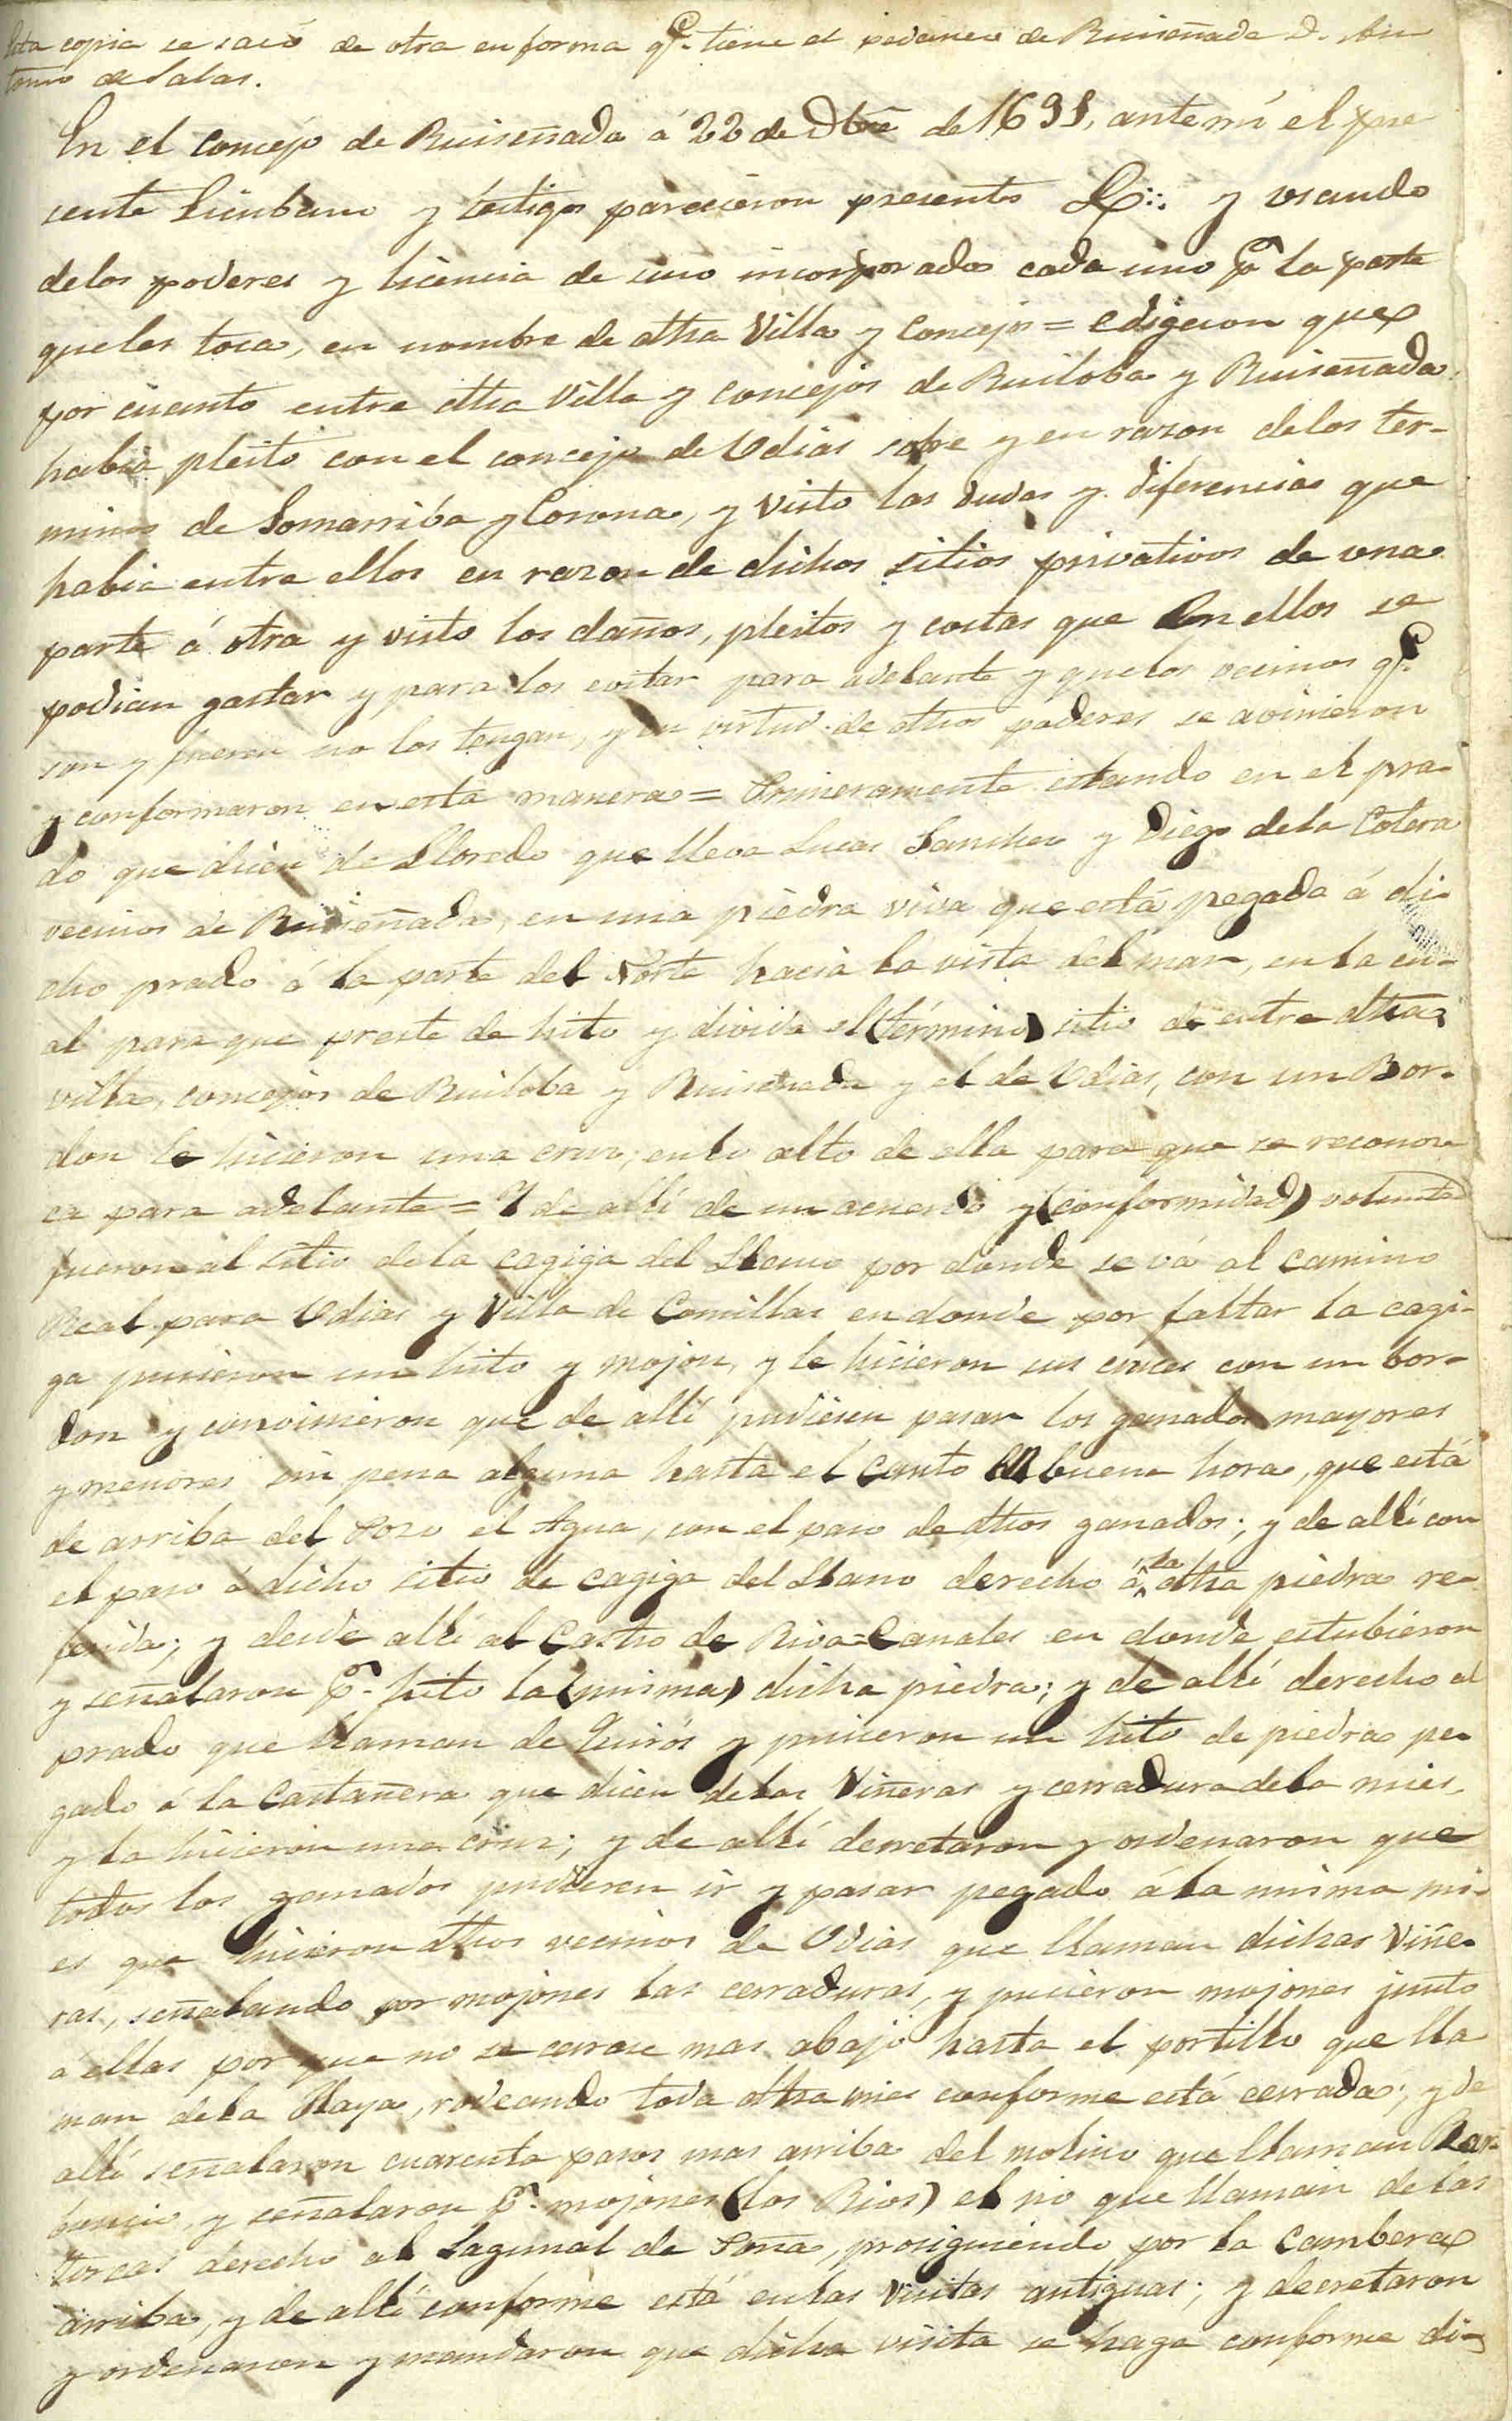 Esta copia se sacó de otra en forma qe. tiene el pedaneo de Ruiseñada D. An
tonio de Salas.
En el Concejo de Ruiseñada á 22 de Dbre de 1698, ante mí el pre
sente Escribano y testigos parecieron presentes &:: y usando
delos poderes y licencia de suso incorporados cada uno pa la parte
queles toca, en nombre de dtha Villa y Concejos = edigeron que
por cuanto entre dtha Villa y Concejos de Ruiloba y Ruiseñada
habia pleito con el concejo de Udias sobre y en razon delos ter-
minos de Somarriba y Corona, y visto las dudas y diferencias que
habia entre ellos en razon de dichos sitios privativos de una
parte á otra y visto los daños, pleitos y costas que en ellos se
podian gastar y para los evitar para adelante y quelos vecinos qe.
son y fueren no los tengan, y en virtud de dthos poderes se avinieron
y conformaron en esta manera = Primeramente estando en el pra-
do que dicen de Lloredo que lleva Lucas Sanchez y Diego dela Cotera
vecinos de Ruiseñada, en una piedra viva que está pegada á di-
cho prado á la parte del Norte hacia la vista del mar, en la cu-
al para que preste de hito y divida el (término) sitio de entre dtha
villa, concejos de Ruiloba y Ruiseñada y el de Udias, con un Bor-
don le hicieron una cruz, en lo alto de ella para que se reconoz
ca para adelante = Y de allí de un acuerdo y (conformidad) voluntad
fueron al sitio dela cagiga del Llano por donde se vá al camino
Real para Udias y Villa de Comillas en donde por faltar la cagi-
ga pusieron un hito y mojon, y le hicieron sus cruces con un bor-
don y convinieron que de allí pudiesen pasar los ganados mayores
y menores sin pena alguna hasta el Canto En buena hora, que está
de arriba del Pozo el Agua, con el paso de dthos ganados; y de allí con
el paso á dicho sitio de cagiga del Llano derecho á la dtha piedra re-
ferida; y desde allí al Castro de Riva=Canales en donde estubieron
y señalaron pr. hito la (misma) dicha piedra; y de allí derecho al
prado que llaman de Quirós y pusieron un hito de piedra pe-
gado á la Castañera que dicen delas Viñeras y cerradura dela mies,
y la hicieron una cruz; y de allí derretaron y ordenaron que
todos los ganados pudieren ir y pasar pegado á la misma mi-
es que hicieron dthos vecinos de Udias que llaman dichas Viñe-
ras, señalando por mojones las cerraduras, y pusieron mojones junto
á ellas por que no se cerrase mas abajo hasta el portillo que lla
man dela Haya, rodeando toda dtha mies conforme está cerrada; y de
allí señalaron cuarenta pasos mas arriba del molino que llaman
y señalaron pr. mojones (los Rios) el rio que llaman de las
torcas derecho al Lagunal de Peña, prosiguiendo por la Cambera
arriba, y de allí conforme está en las visitas antiguas; y decretaron
y ordenaron y mandaron que dicha visita se haga conforme di-